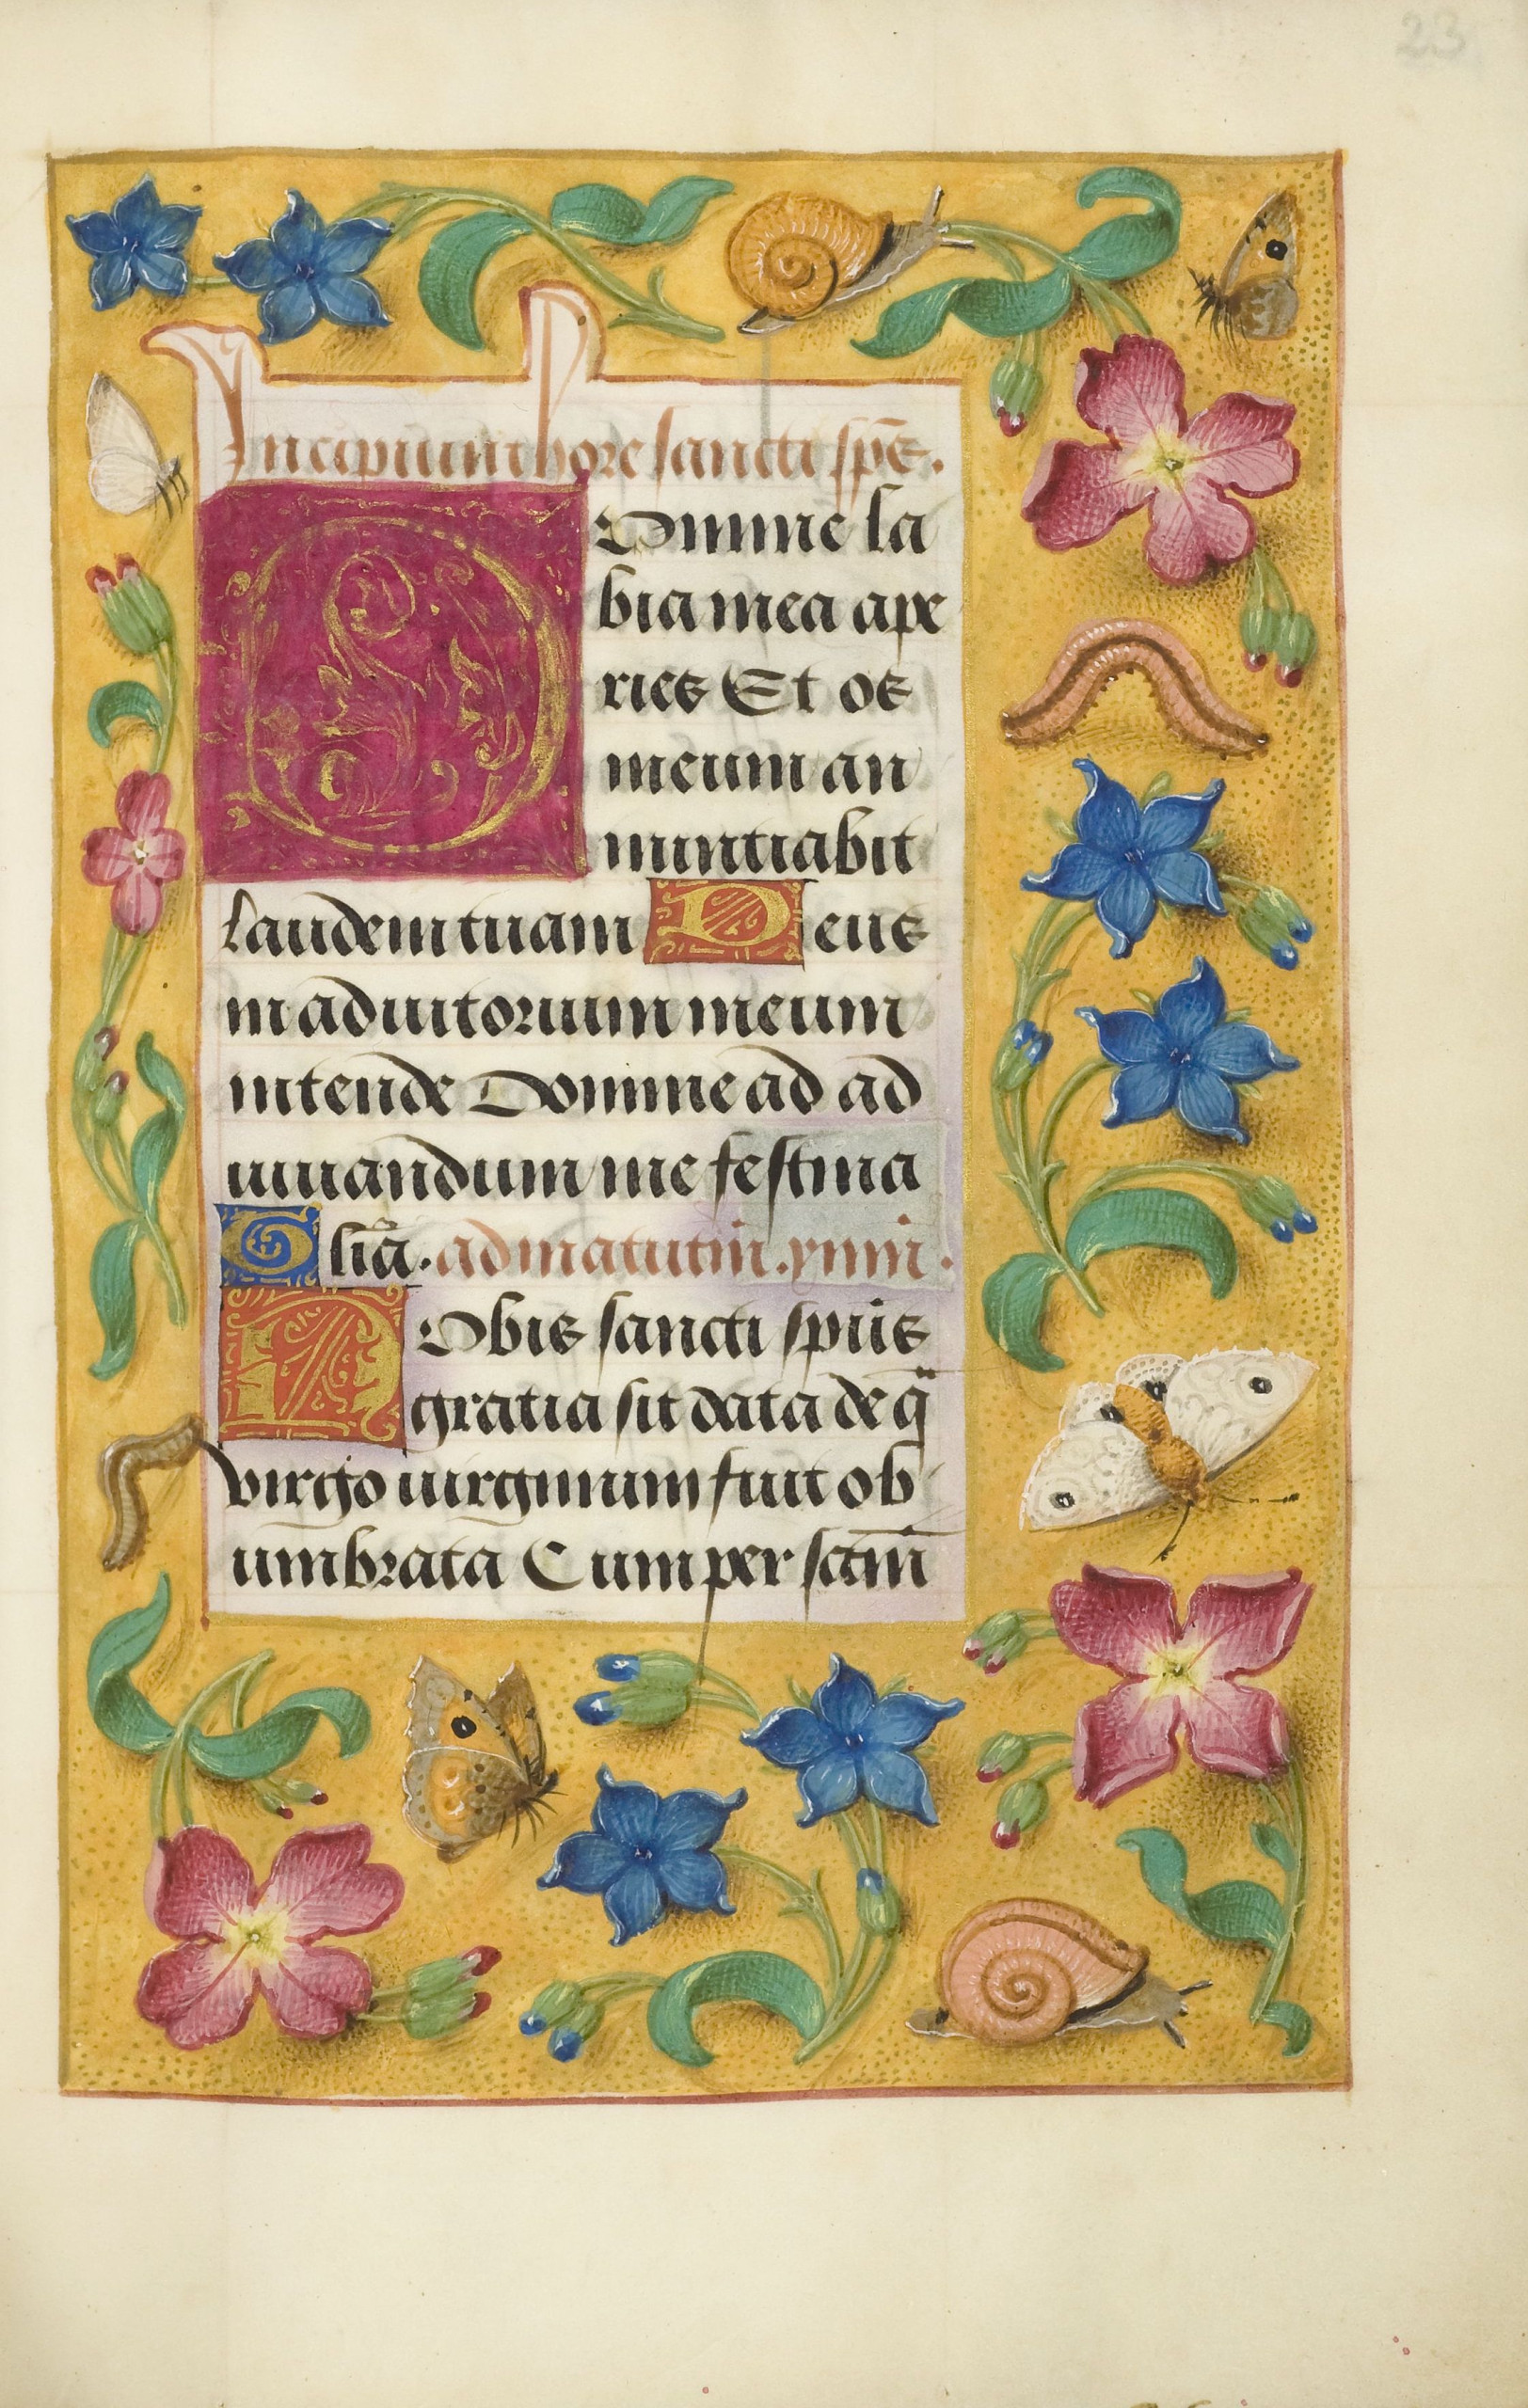 23
Incipiunt hore sancti sp̄s.
Domine la
bia mea ape
ries Et os
meum an
nuntiabit
laudem tuam Deus
in adiutorium meum
intende Domine ad ad
iuuandum me festina
Gl̄ia. ad matutin̄. ymn̄.
Nobis sancti sp̄us
gratia sit data de q̄
virgo uirginum fuit ob
umbrata Cum per sc̄am